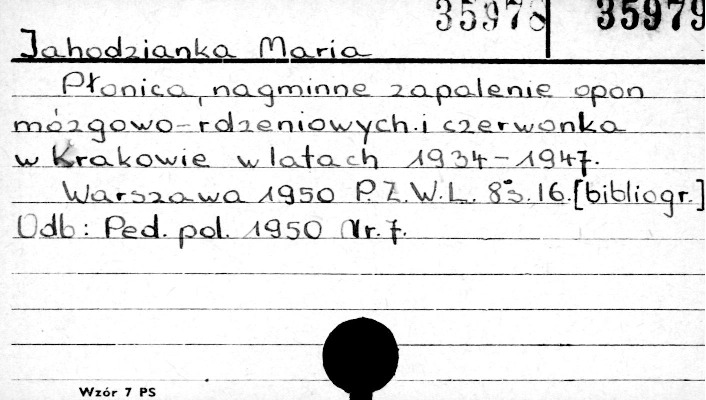 35978 35979
Jahodzianka Maria
Płonica, nagminne zapalenie opon
mózgowo-rdzeniowych i czerwonka
w Krakowie w latach 1934-1947.
Warszawa 1950 P.Z.W.L. 8° s. 16. [bibliogr.]
Odb: Ped. pol. 1950 Nr. 7.
Wzór 7 PS